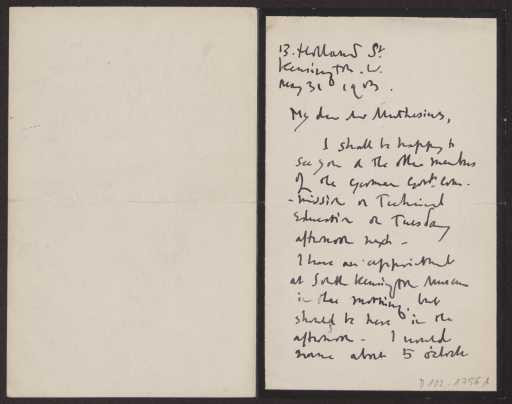 13. Holland St
Kensington. W.
May 31 1903.
My dear Mr Muthesius,
I shall be happy to
see you & the other members
of the German Govt. Com-
-mission on Technical
Education on Tuesday
afternoon next -
I have an appointment
at South Kensington Museum
in the morning, but
should be here in the
afternoon - I would
name about 5 o'clock
D 102 - 1756 A